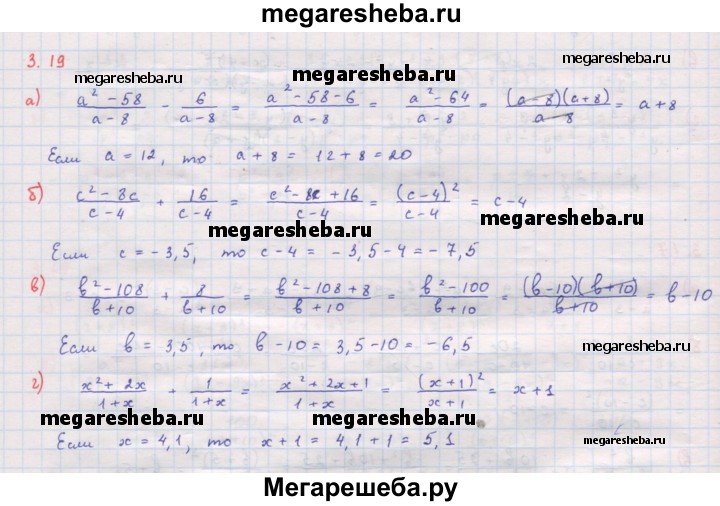 megaresheba.ru
3.19
megaresheba.ru
megaresheba.ru
megaresheba.ru
а) (a² - 58)/(a - 8) - 6/(a - 8) = (a² - 58 - 6)/(a - 8) = (a² - 64)/(a - 8) = ((a - 8)(a + 8))/(a - 8) = a + 8
Если a = 12, то a + 8 = 12 + 8 = 20
б) (c² - 8c)/(c - 4) + 16/(c - 4) = (c² - 8c + 16)/(c - 4) = (c - 4)²/(c - 4) = c - 4
megaresheba.ru
megaresheba.ru
Если c = - 3,5, то c - 4 = - 3,5 - 4 = - 7,5
в) (b² - 108)/(b + 10) + 8/(b + 10) = (b² - 108 + 8)/(b + 10) = (b² - 100)/(b + 10) = ((b - 10)(b + 10))/(b + 10) = b - 10
Если b = 3,5, то b - 10 = 3,5 - 10 = - 6,5
megaresheba.ru
г) (x² + 2x)/(1 + x) + 1/(1 + x) = (x² + 2x + 1)/(1 + x) = (x + 1)²/(x + 1) = x + 1
megaresheba.ru
megaresheba.ru
Если x = 4,1, то x + 1 = 4,1 + 1 = 5,1
megaresheba.ru
Мегарешеба.ру